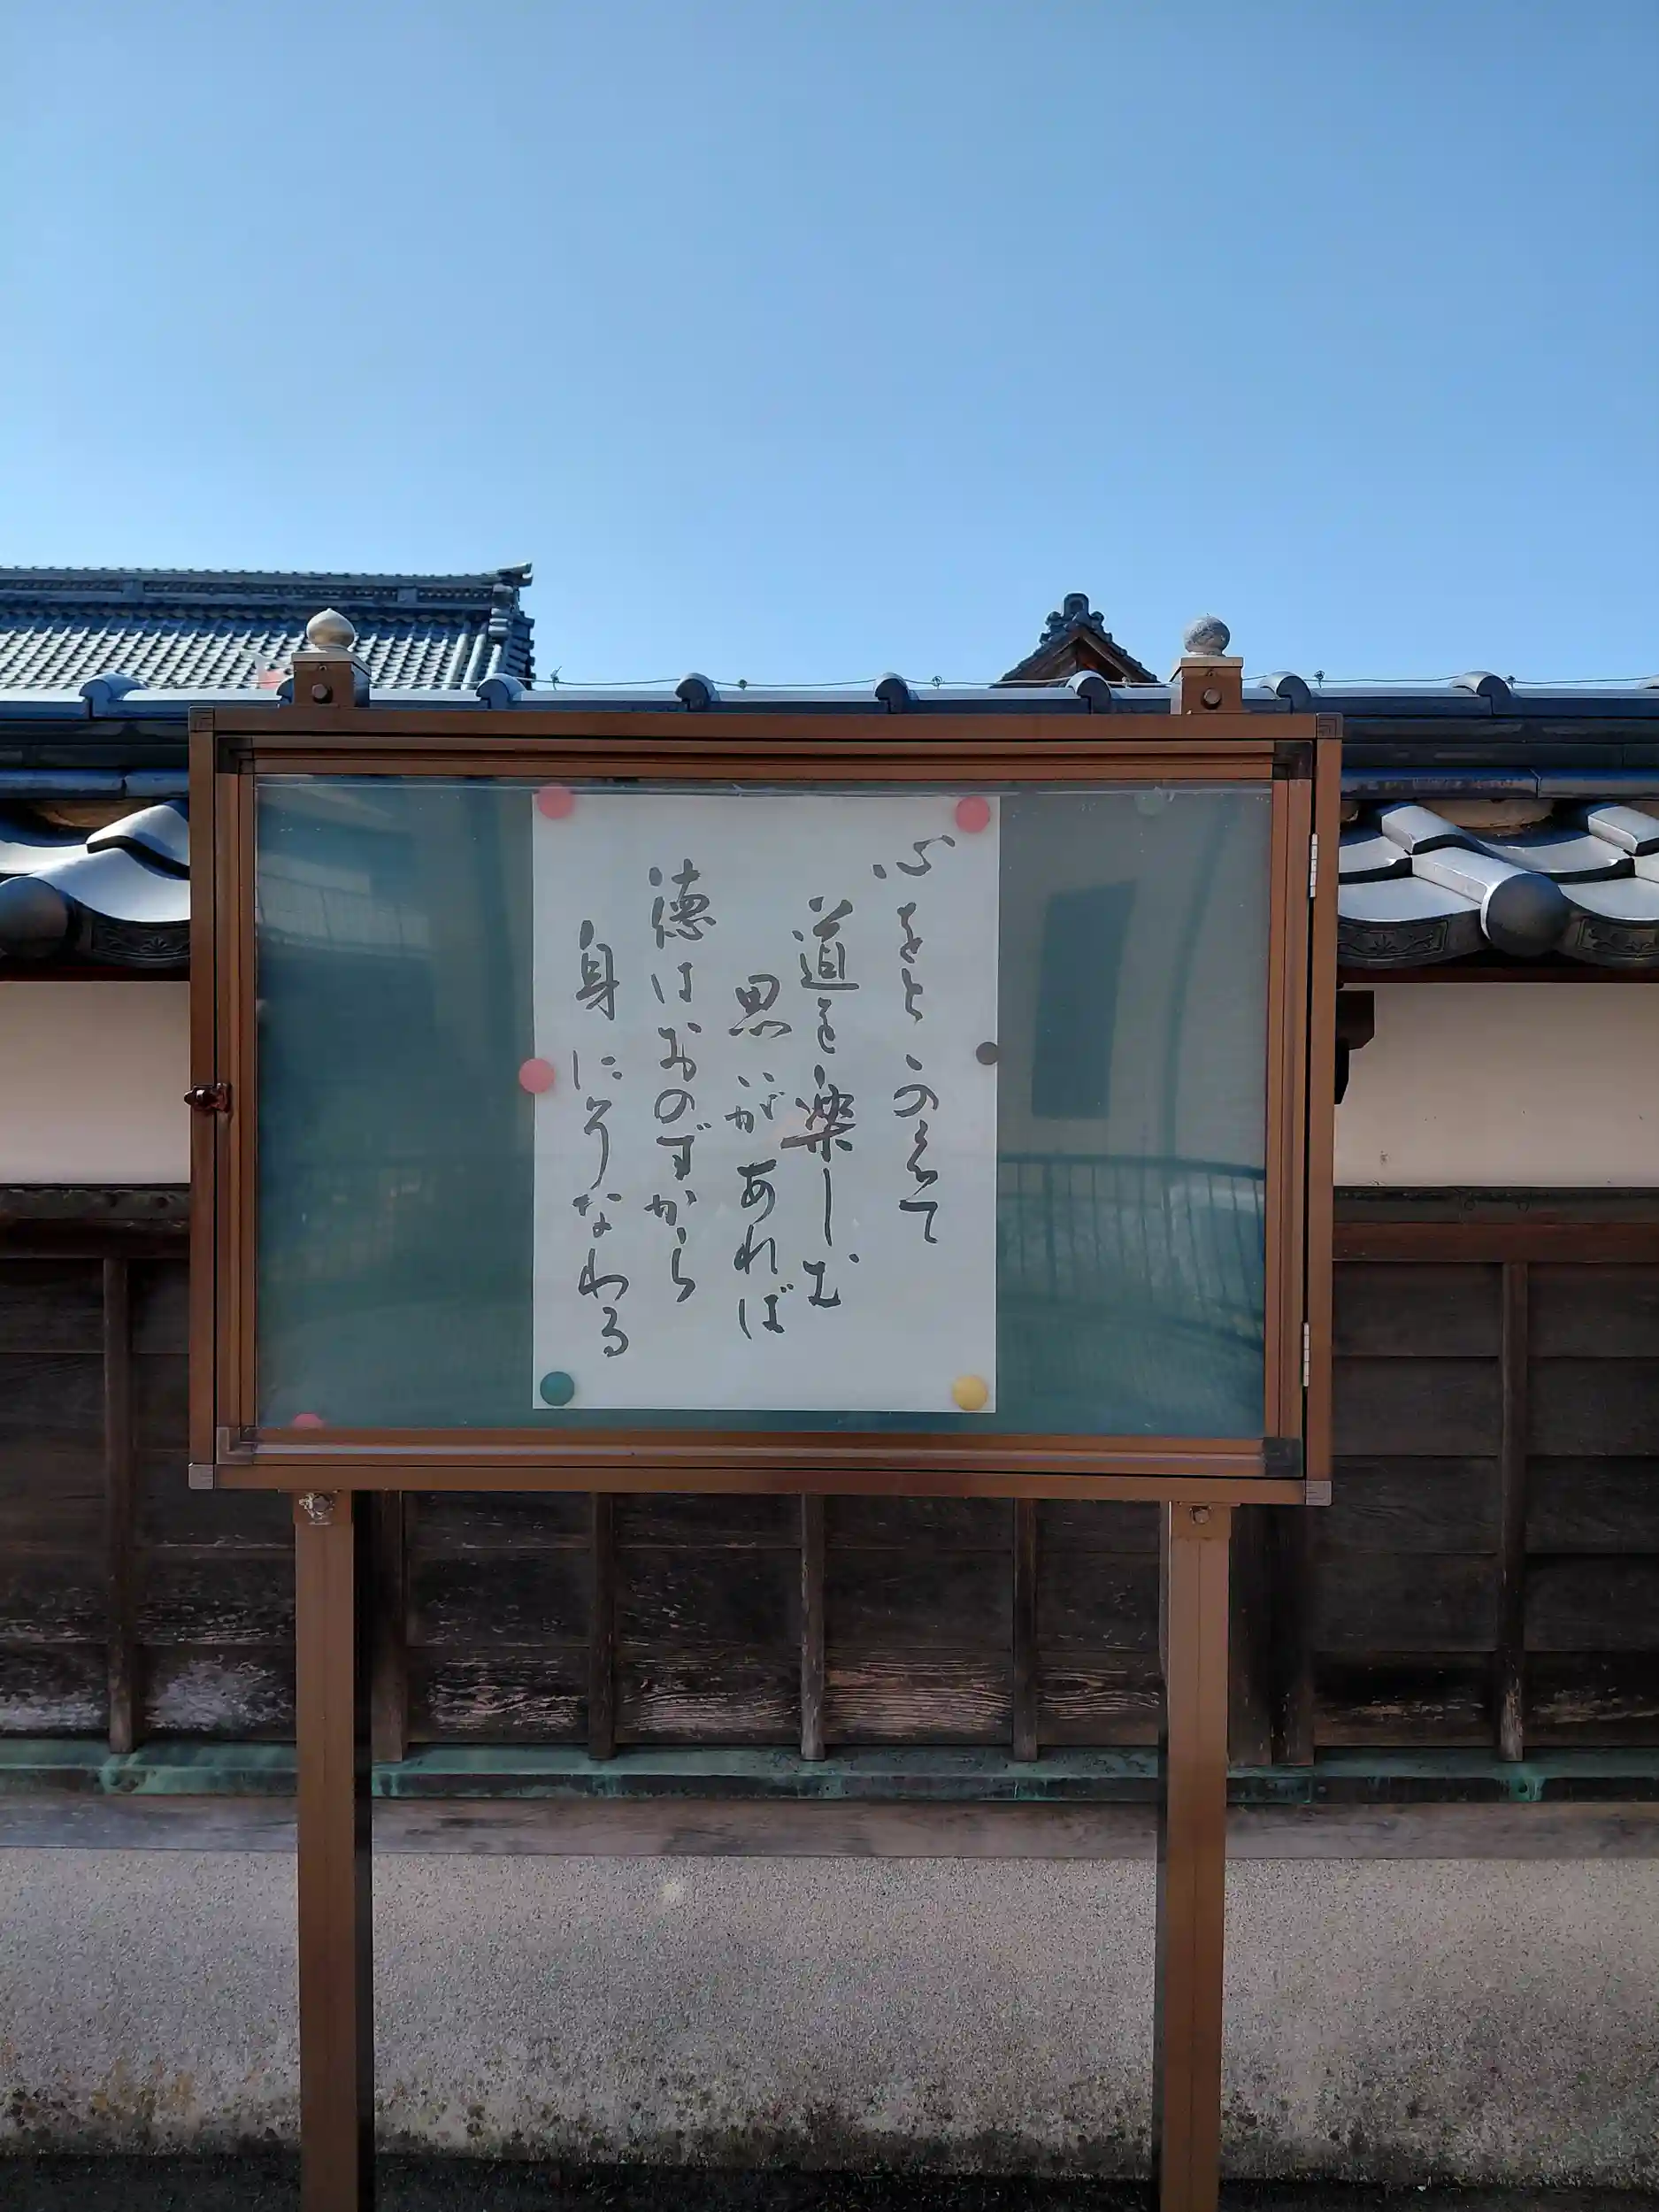 心をととのえて
道を楽しむ
思いがあれば
徳はおのずから
身にそなわる